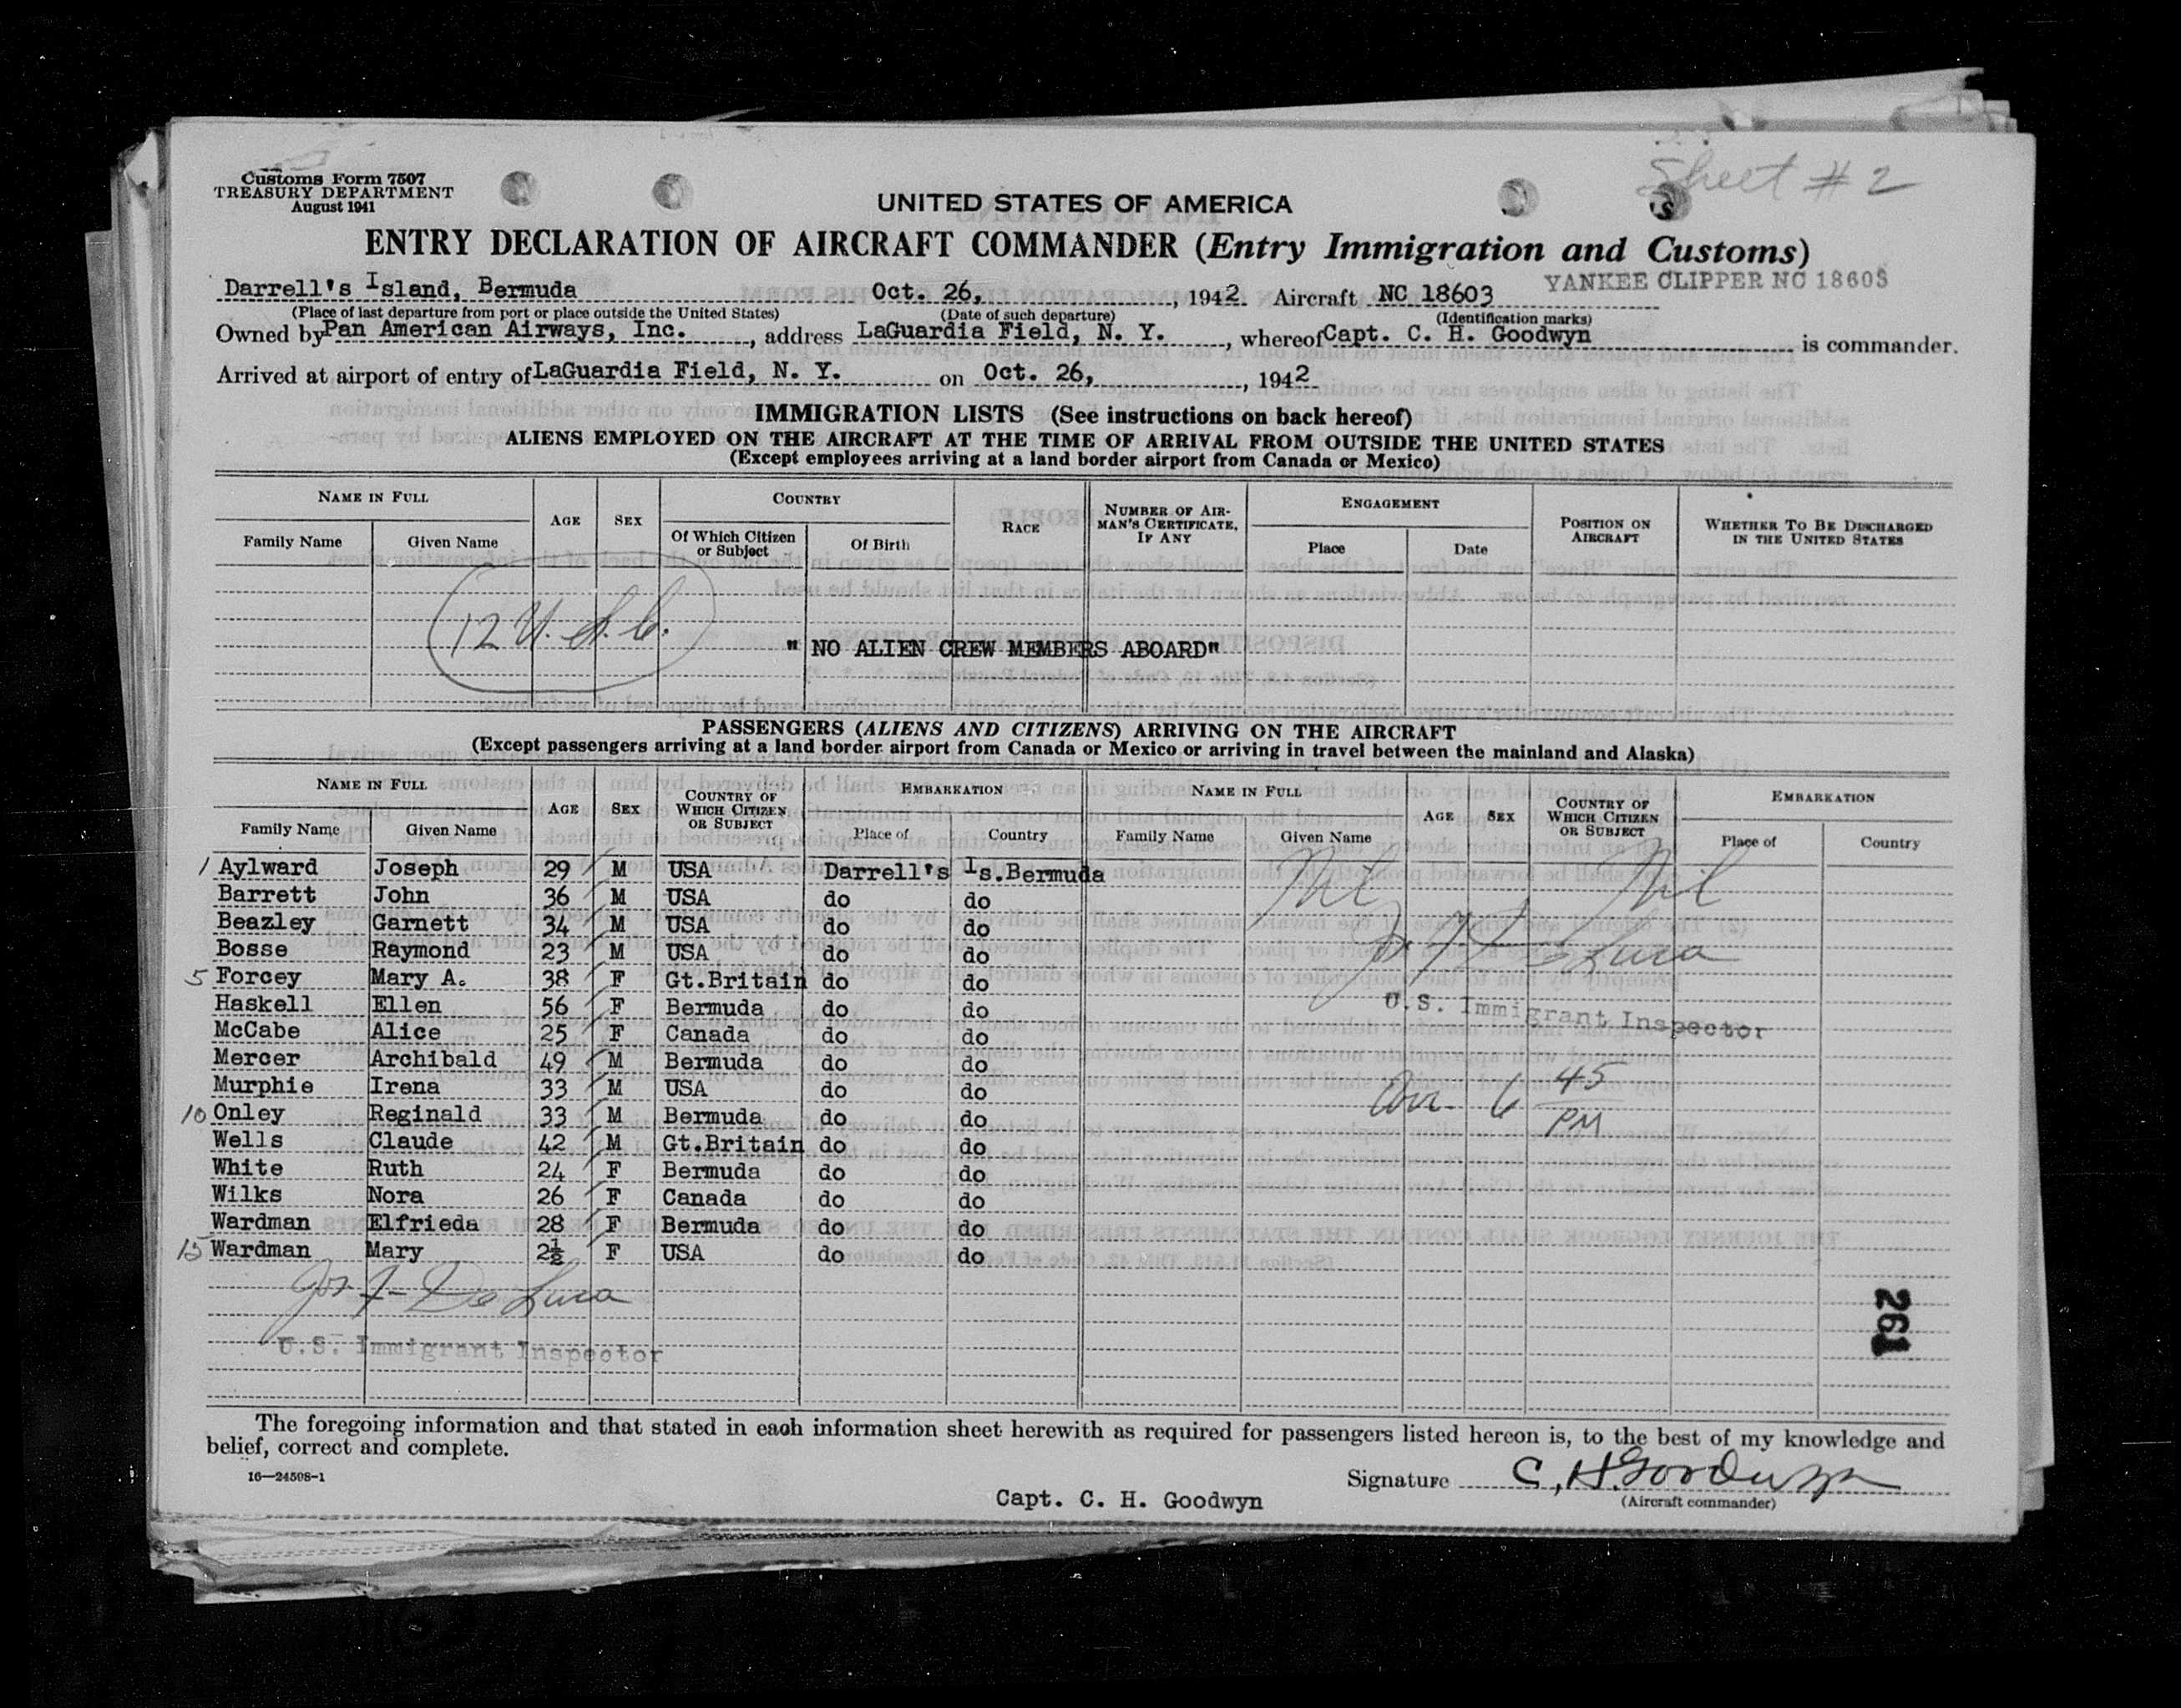 Sheet #2
Customs Form 7507
TREASURY DEPARTMENT
August 1941
UNITED STATES OF AMERICA
ENTRY DECLARATION OF AIRCRAFT COMMANDER (Entry Immigration and Customs)
YANKEE CLIPPER NC 18603
Darrell's Island, Bermuda Oct. 26, , 1942. Aircraft NC 18603
(Place of last departure from port or place outside the United States) (Date of such departure) (Identification marks)
Owned by Pan American Airways, Inc. , address LaGuardia Field, N. Y. , whereof Capt. C. H. Goodwyn is commander.
Arrived at airport of entry of LaGuardia Field, N. Y. on Oct. 26, , 1942
IMMIGRATION LISTS (See instructions on back hereof)
ALIENS EMPLOYED ON THE AIRCRAFT AT THE TIME OF ARRIVAL FROM OUTSIDE THE UNITED STATES
(Except employees arriving at a land border airport from Canada or Mexico)
NAME IN FULL AGE SEX COUNTRY RACE NUMBER OF AIRMAN'S CERTIFICATE, IF ANY ENGAGEMENT POSITION ON AIRCRAFT WHETHER TO BE DISCHARGED IN THE UNITED STATES
Family Name Given Name Of Which Citizen or Subject Of Birth Place Date
12 U.S.C.
" NO ALIEN CREW MEMBERS ABOARD"
PASSENGERS (ALIENS AND CITIZENS) ARRIVING ON THE AIRCRAFT
(Except passengers arriving at a land border airport from Canada or Mexico or arriving in travel between the mainland and Alaska)
NAME IN FULL AGE SEX COUNTRY OF WHICH CITIZEN OR SUBJECT EMBARKATION NAME IN FULL AGE SEX COUNTRY OF WHICH CITIZEN OR SUBJECT EMBARKATION
Family Name Given Name Place of Country Family Name Given Name Place of Country
1 Aylward Joseph 29 M USA Darrell's Is.Bermuda Nil Nil
Barrett John 36 M USA do do
Beazley Garnett 34 M USA do do
Bosse Raymond 23 M USA do do
5 Forcey Mary A. 38 F Gt.Britain do do
Haskell Ellen 56 F Bermuda do do
U.S. Immigrant Inspector
McCabe Alice 25 F Canada do do
Mercer Archibald 49 M Bermuda do do
Murphie Irena 33 M USA do do
Arr. 6 45 PM
10 Onley Reginald 33 M Bermuda do do
Wells Claude 42 M Gt.Britain do do
White Ruth 24 F Bermuda do do
Wilks Nora 26 F Canada do do
Wardman Elfrieda 28 F Bermuda do do
15 Wardman Mary 2½ F USA do do
Jos. F. De Luca
U.S. Immigrant Inspector
261
The foregoing information and that stated in each information sheet herewith as required for passengers listed hereon is, to the best of my knowledge and
belief, correct and complete.
16—24508-1
Signature C. H. Goodwyn
(Aircraft commander)
Capt. C. H. Goodwyn